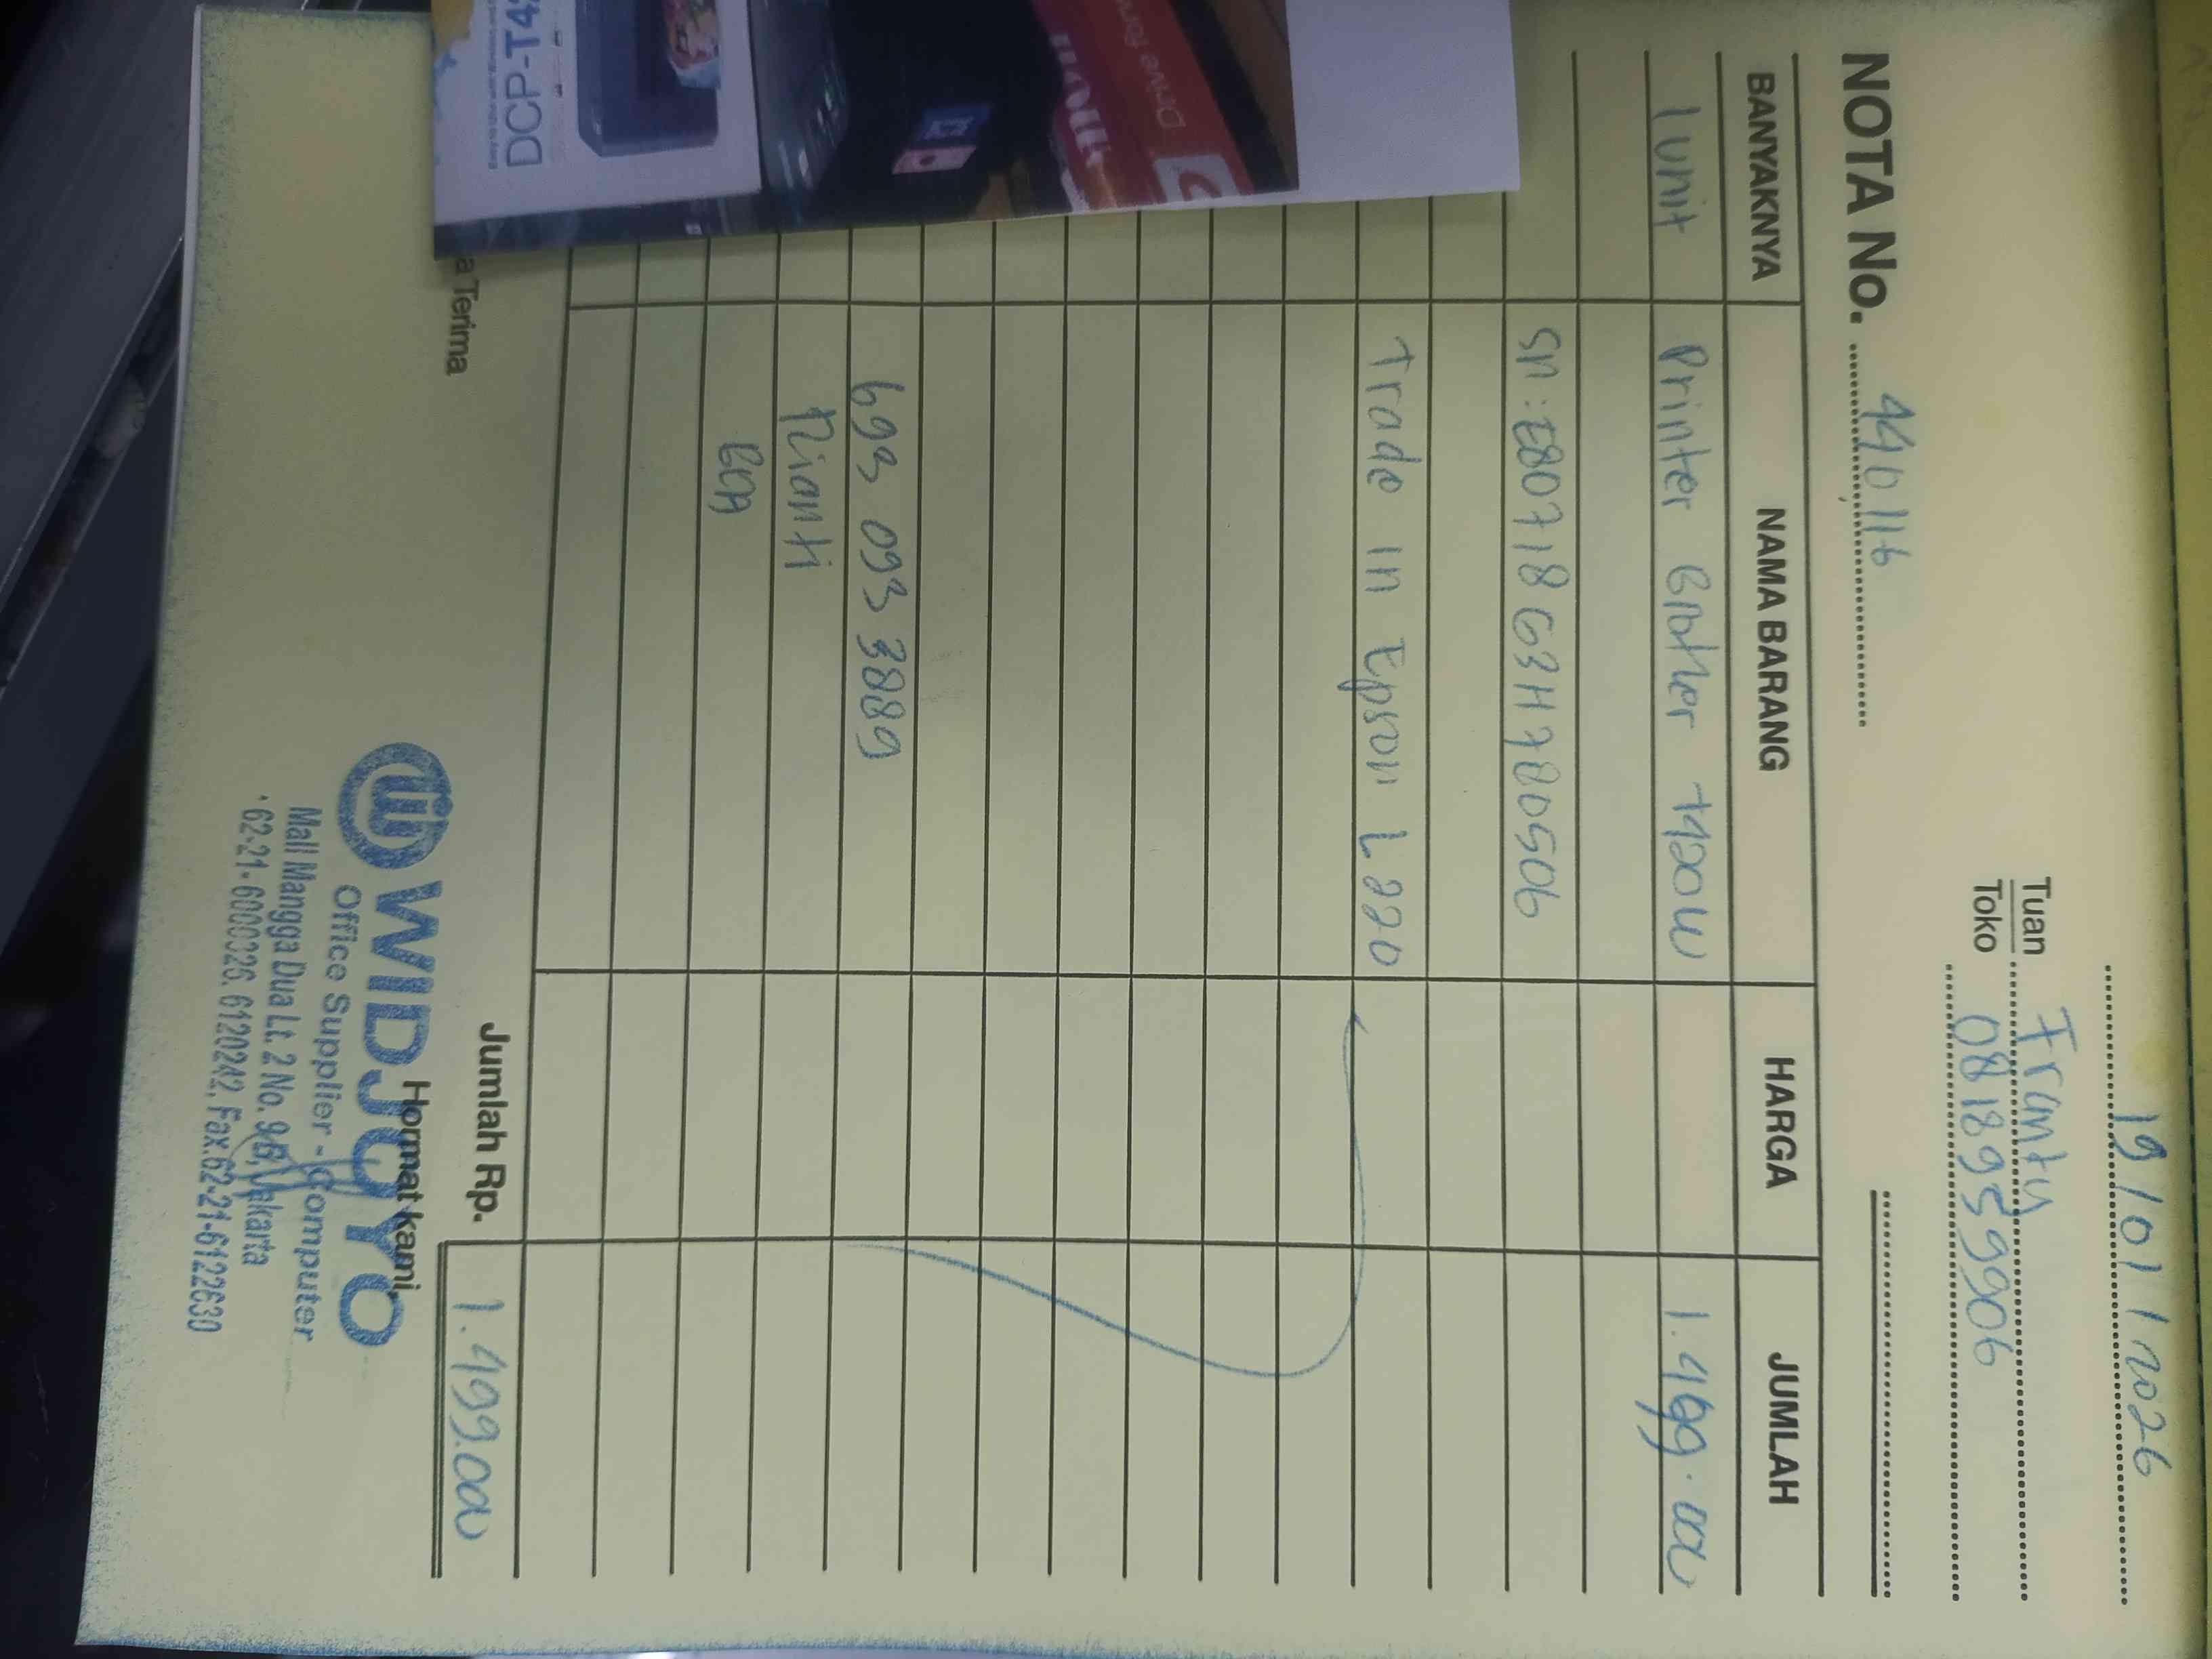 19/01/2026
Tuan Frantu
Toko 0818959906
NOTA No. 440116
BANYAKNYA NAMA BARANG HARGA JUMLAH
1 unit Printer Brother T420W 1.499.000
SN: E80718G3H780506
Trade In Epson L220
693 093 3889
Rianti
BCA
Jumlah Rp. 1.499.000
a Terima
Hormat kami,
WIDJOYO
Office Supplier - Computer
Mall Mangga Dua Lt. 2 No. Jakarta
62-21-6000326, 6120242, Fax.62-21-6122630
DCP-T4
Drive